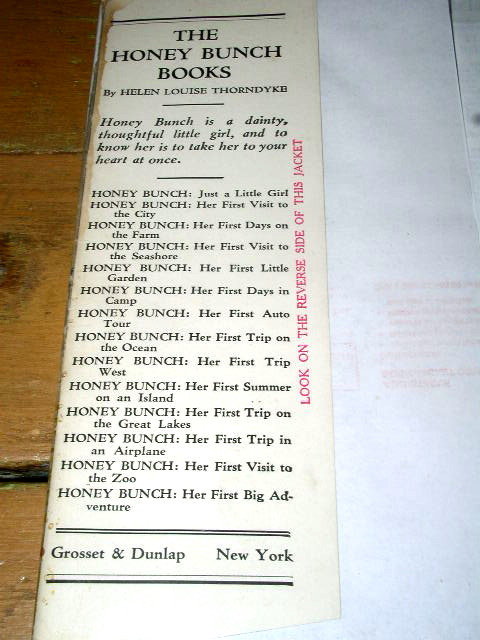 THE
HONEY BUNCH
BOOKS
By HELEN LOUISE THORNDYKE
Honey Bunch is a dainty,
thoughtful little girl, and to
know her is to take her to your
heart at once.
HONEY BUNCH: Just a Little Girl
HONEY BUNCH: Her First Visit to
the City
HONEY BUNCH: Her First Days on
the Farm
HONEY BUNCH: Her First Visit to
the Seashore
HONEY BUNCH: Her First Little
Garden
HONEY BUNCH: Her First Days in
Camp
HONEY BUNCH: Her First Auto
Tour
HONEY BUNCH: Her First Trip on
the Ocean
HONEY BUNCH: Her First Trip
West
HONEY BUNCH: Her First Summer
on an Island
HONEY BUNCH: Her First Trip on
the Great Lakes
HONEY BUNCH: Her First Trip in
an Airplane
HONEY BUNCH: Her First Visit to
the Zoo
HONEY BUNCH: Her First Big Ad-
venture
Grosset & Dunlap New York
LOOK ON THE REVERSE SIDE OF THIS JACKET